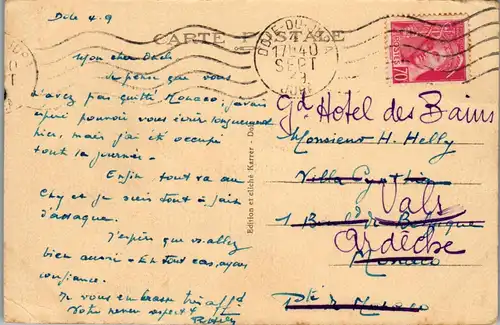 Dole 4.9
CARTE POSTALE
DOLE-DU-JURA
17H40
SEPT
JURA
POSTES
70
Mon cher
Je pense que vous
n'avez pas quitté Monaco, j'avais
espéré pouvoir vous écrire longuement
hier, mais j'ai été occupé
toute la journée.
Enfin tout va au
et je suis tout à fait
d'attaque.
J'espère que vs. allez
bien aussi - En tout cas, ayons
confiance.
Je vous embrasse très aff
Votre neveu respect
Edition et cliché Karrer - Dole
Gd Hôtel des Bains
Monsieur H. Helly
Villa Cynthia
Vals
1 Bard de Belgique
Ardèche
Monaco
Pté de Monaco